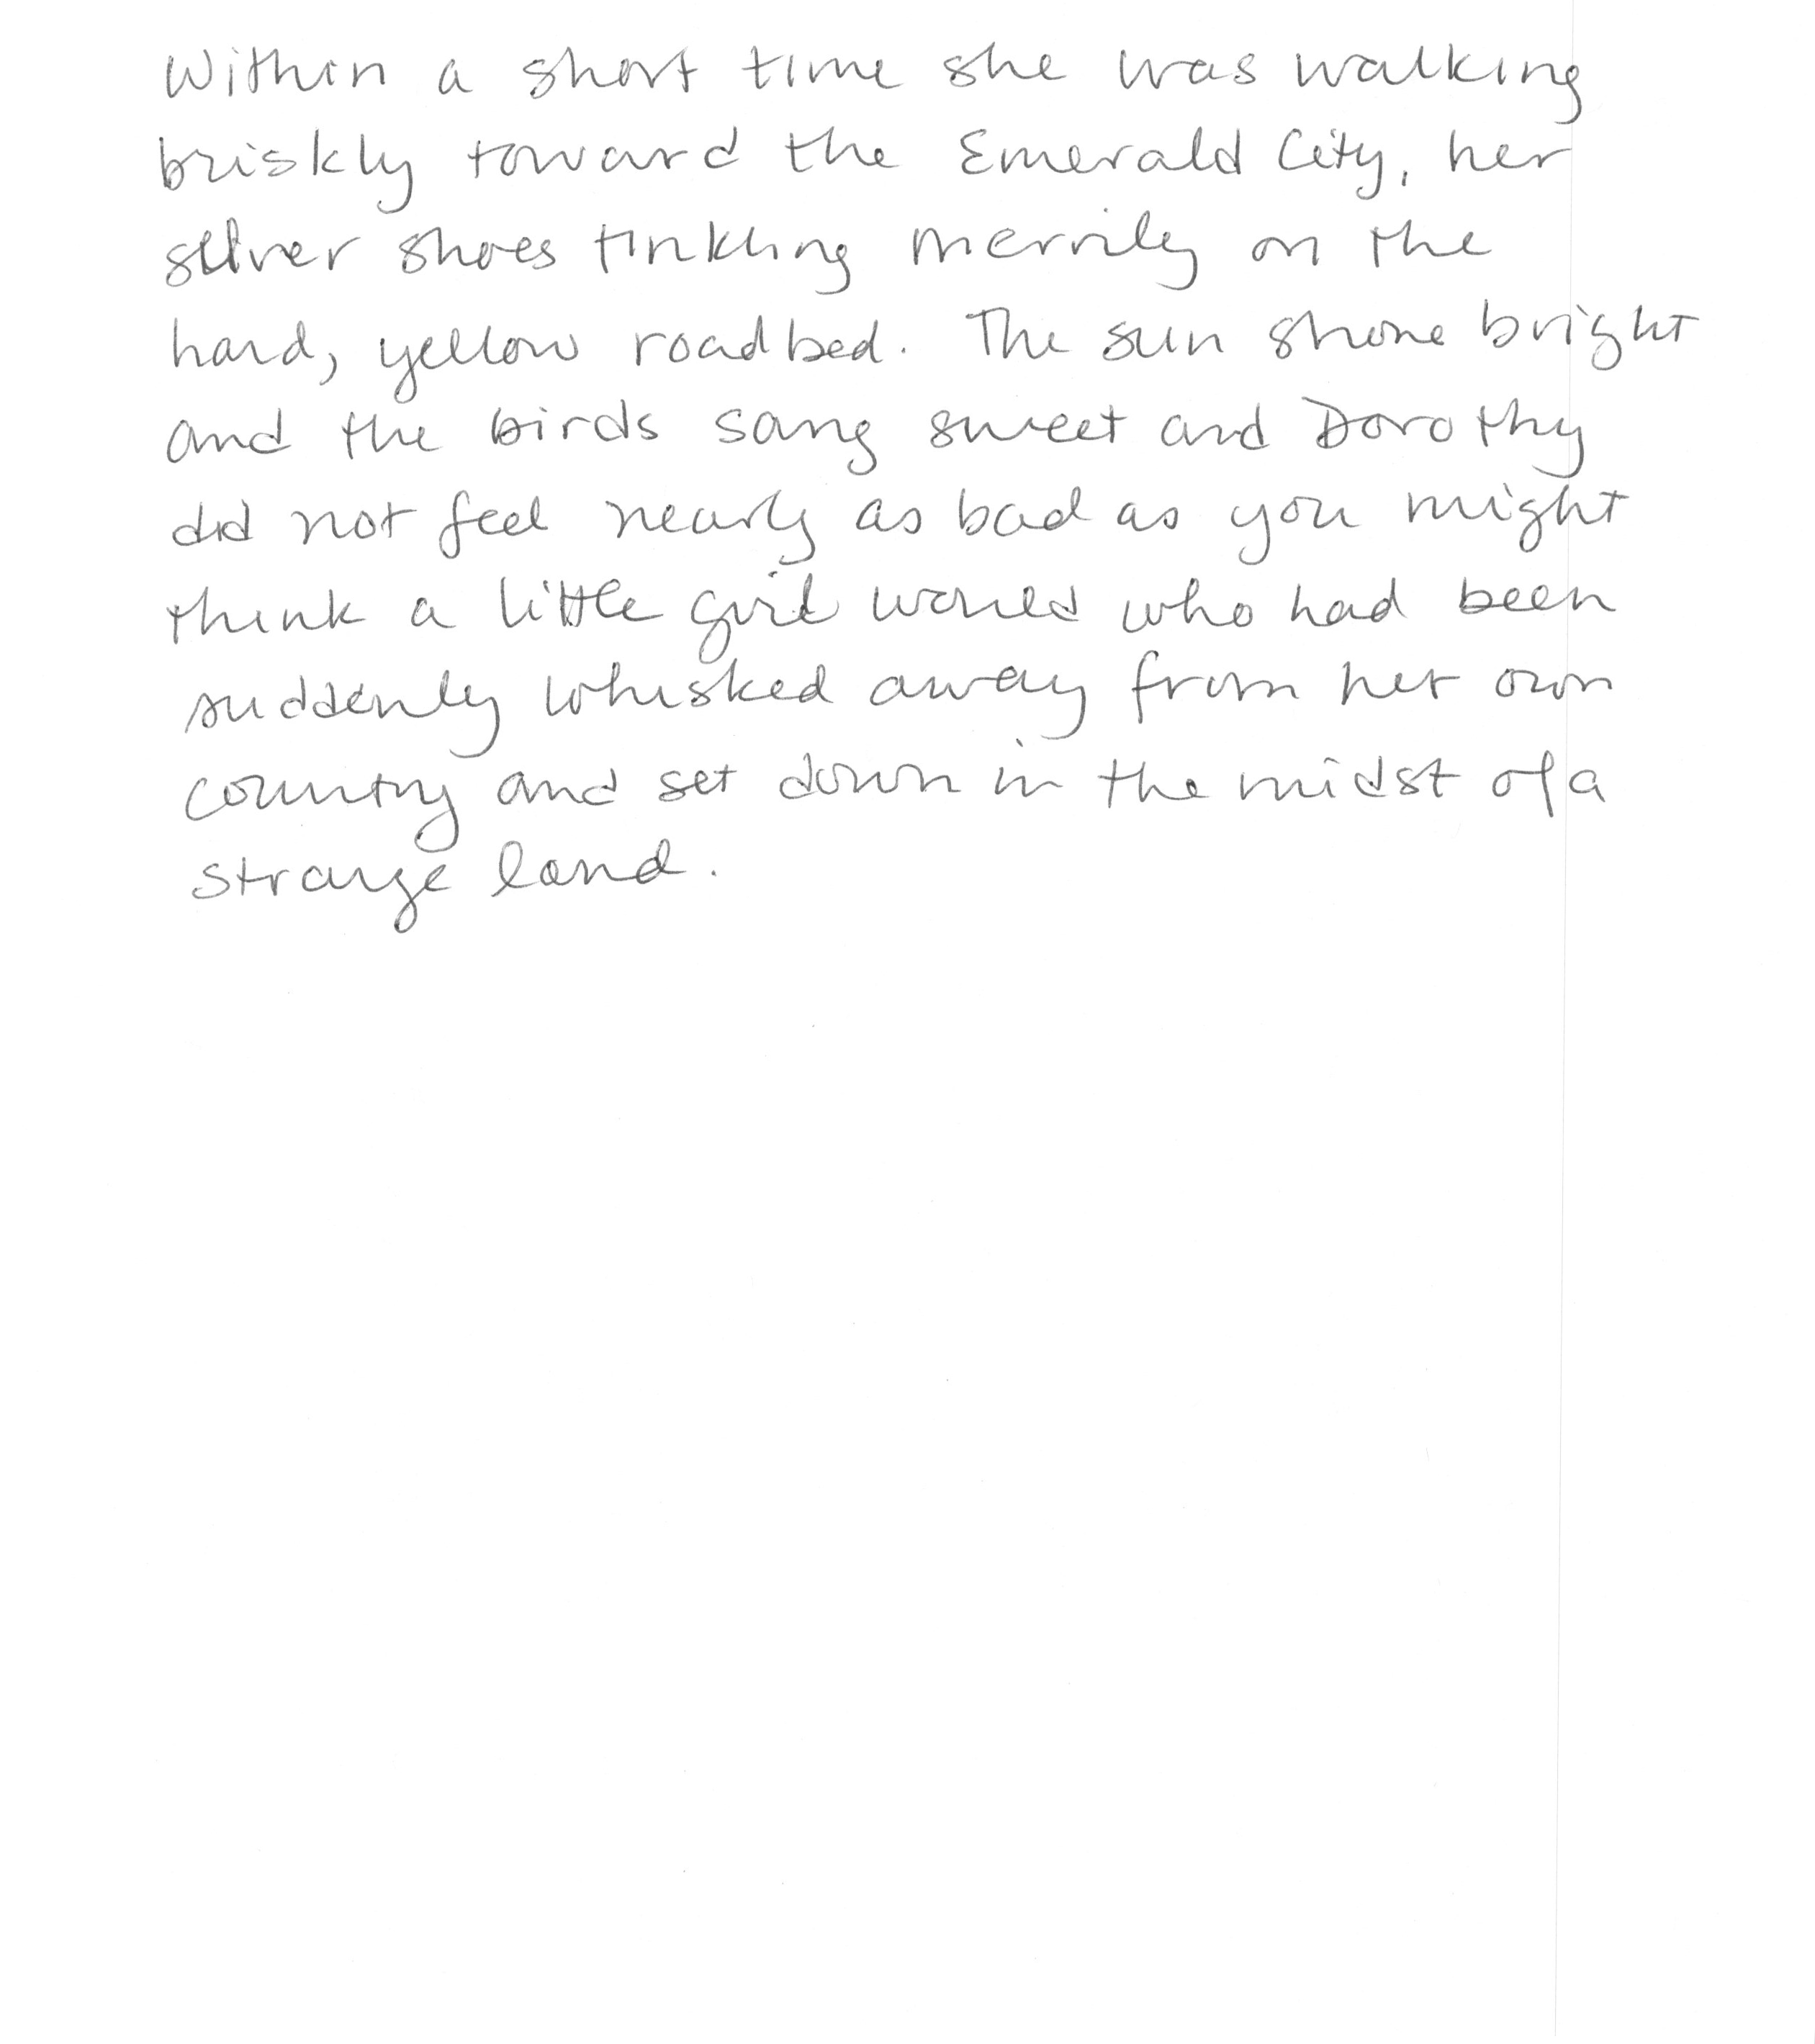 Within a short time she was walking
briskly toward the Emerald City, her
silver shoes tinkling merrily on the
hard, yellow roadbed. The sun shone bright
and the birds sang sweet and Dorothy
did not feel nearly as bad as you might
think a little girl would who had been
suddenly whisked away from her own
country and set down in the midst of a
strange land.